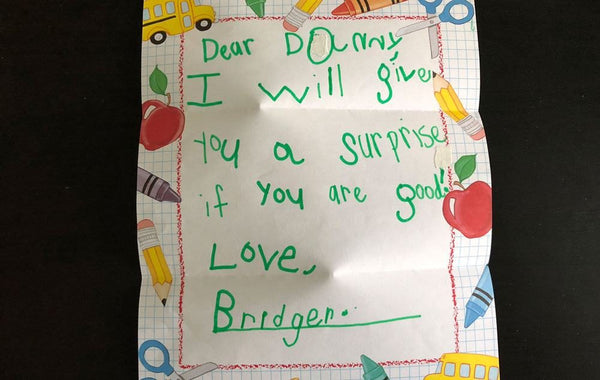 Dear Danny,
I will give
you a surprise
if you are good!
Love,
Bridger.